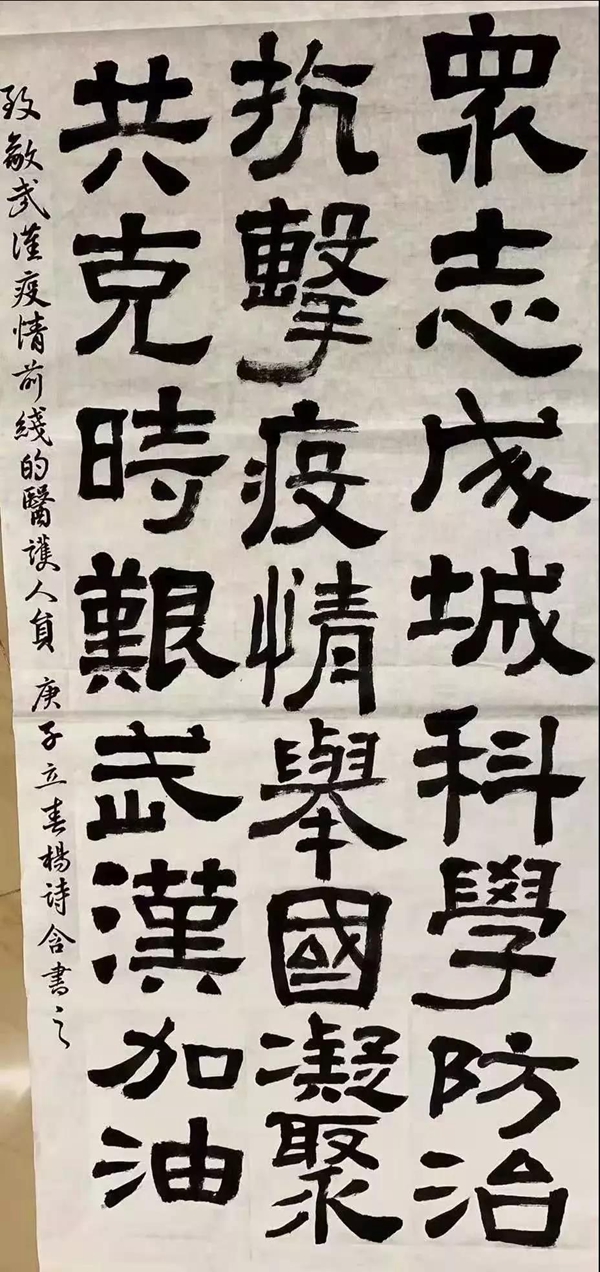 眾志成城科學防治
抗擊疫情舉國凝聚
共克時艱武漢加油
致敬武漢疫情前綫的醫護人員 庚子立春楊詩含書之